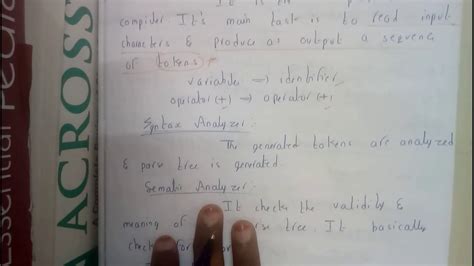 It is the
compiler. It's main task is to read input
characters & produce as output a sequence
of tokens.
variable ⇒ identifier
operator (+) ⇒ operator (+)
Syntax Analyzer:
The generated tokens are analyzed
& parse tree is generated.
Sematic Analyzer:
It checks the validity &
meaning of tree. It basically
ACROSS